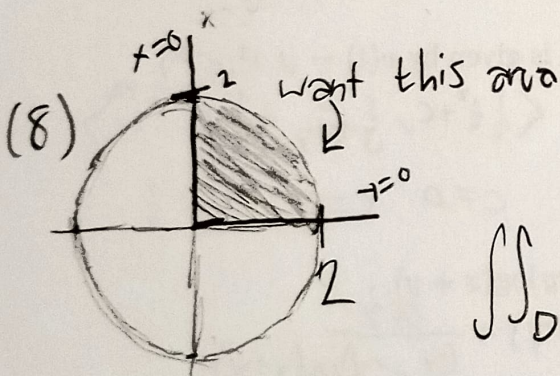 x
x=0
2
want this area
(8)
y=0
2
∬D